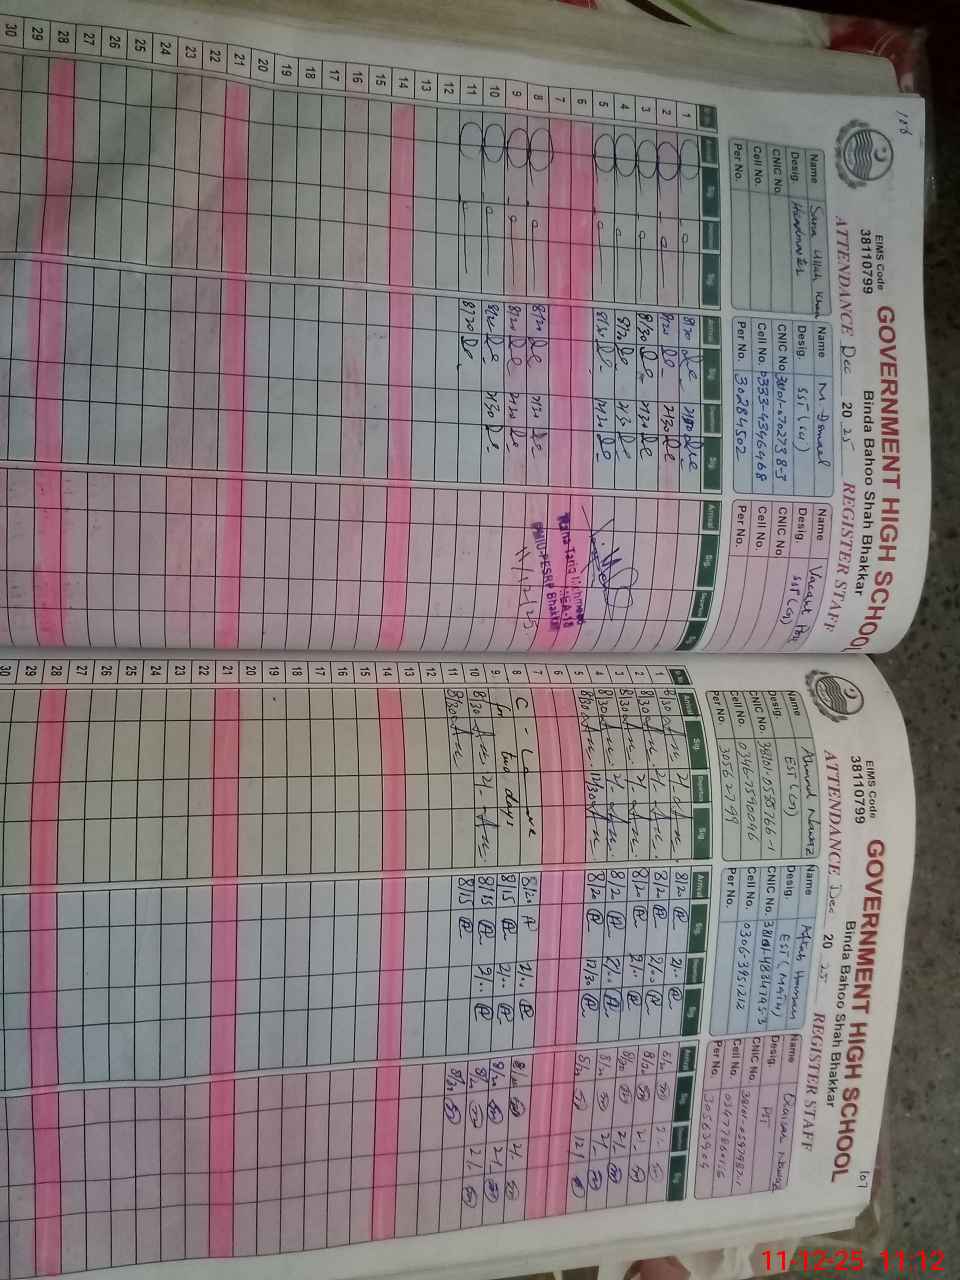 106
EIMS Code
38110799
GOVERNMENT HIGH SCHOOL
Binda Bahoo Shah Bhakkar
ATTENDANCE Dec 2025 REGISTER STAFF
Name Sana Ullah Khan
Desig. Headmaster
CNIC No.
Cell No.
Per No.
Name M. Ismael
Desig. SST (Sci)
CNIC No. 38101-0702738-3
Cell No. 0333-4346468
Per No. 30284502
Name Vacant Post
Desig. SST (G)
CNIC No.
Cell No.
Per No.
Sr.No. Arrival Sig. Departure Sig. Arrival Sig. Departure Sig. Arrival Sig. Departure Sig.
1 8/20 2/30
2 8/20 2/30
3 8/30 2/30
4 8/20 2/30
5 8/20 12/30
6
7
8 8/20 2/20
9 8/20 2/20
10 8/20 2/30
11 8/20
12
13
14
15
16
17
18
19
20
21
22
23
24
25
26
27
28
29
30
Rana Tariq Mehmood
PMIU-PESRP Bhakkar
11/12/25
107
EIMS Code
38110799
GOVERNMENT HIGH SCHOOL
Binda Bahoo Shah Bhakkar
ATTENDANCE Dec 2025 REGISTER STAFF
Name Ahmad Nawaz
Desig. EST (G)
CNIC No. 38101-0585766-1
Cell No. 0346-7590046
Per No. 30562799
Name Aftab Hussain
Desig. EST (MATH)
CNIC No. 38101-4834795-3
Cell No. 0306-3951212
Per No.
Name Qaisar Nawaz
Desig. PST
CNIC No.
Cell No.
Per No. 30563904
Sr.No. Arrival Sig. Departure Sig. Arrival Sig. Departure Sig. Arrival Sig. Departure Sig.
1 8/30 2/- 8/20 2/00 8/20 2/-
2 8/30 2/- 8/20 2/00 8/20 2/-
3 8/30 2/- 8/20 2/00 8/20 2/-
4 8/30 2/- 8/20 2/00 8/20 2/-
5 8/30 12/30 8/20 12/30 8/20 12/
6
7
8 C - Leave 8/20 2/00 8/20 2/-
9 for two days 8/15 2/00 8/20 2/-
10 8/30 2/- 8/15 2/00 8/20 2/-
11 8/30 8/15 8/20
12
13
14
15
16
17
18
19
20
21
22
23
24
25
26
27
28
29
30
11-12-25 11:12